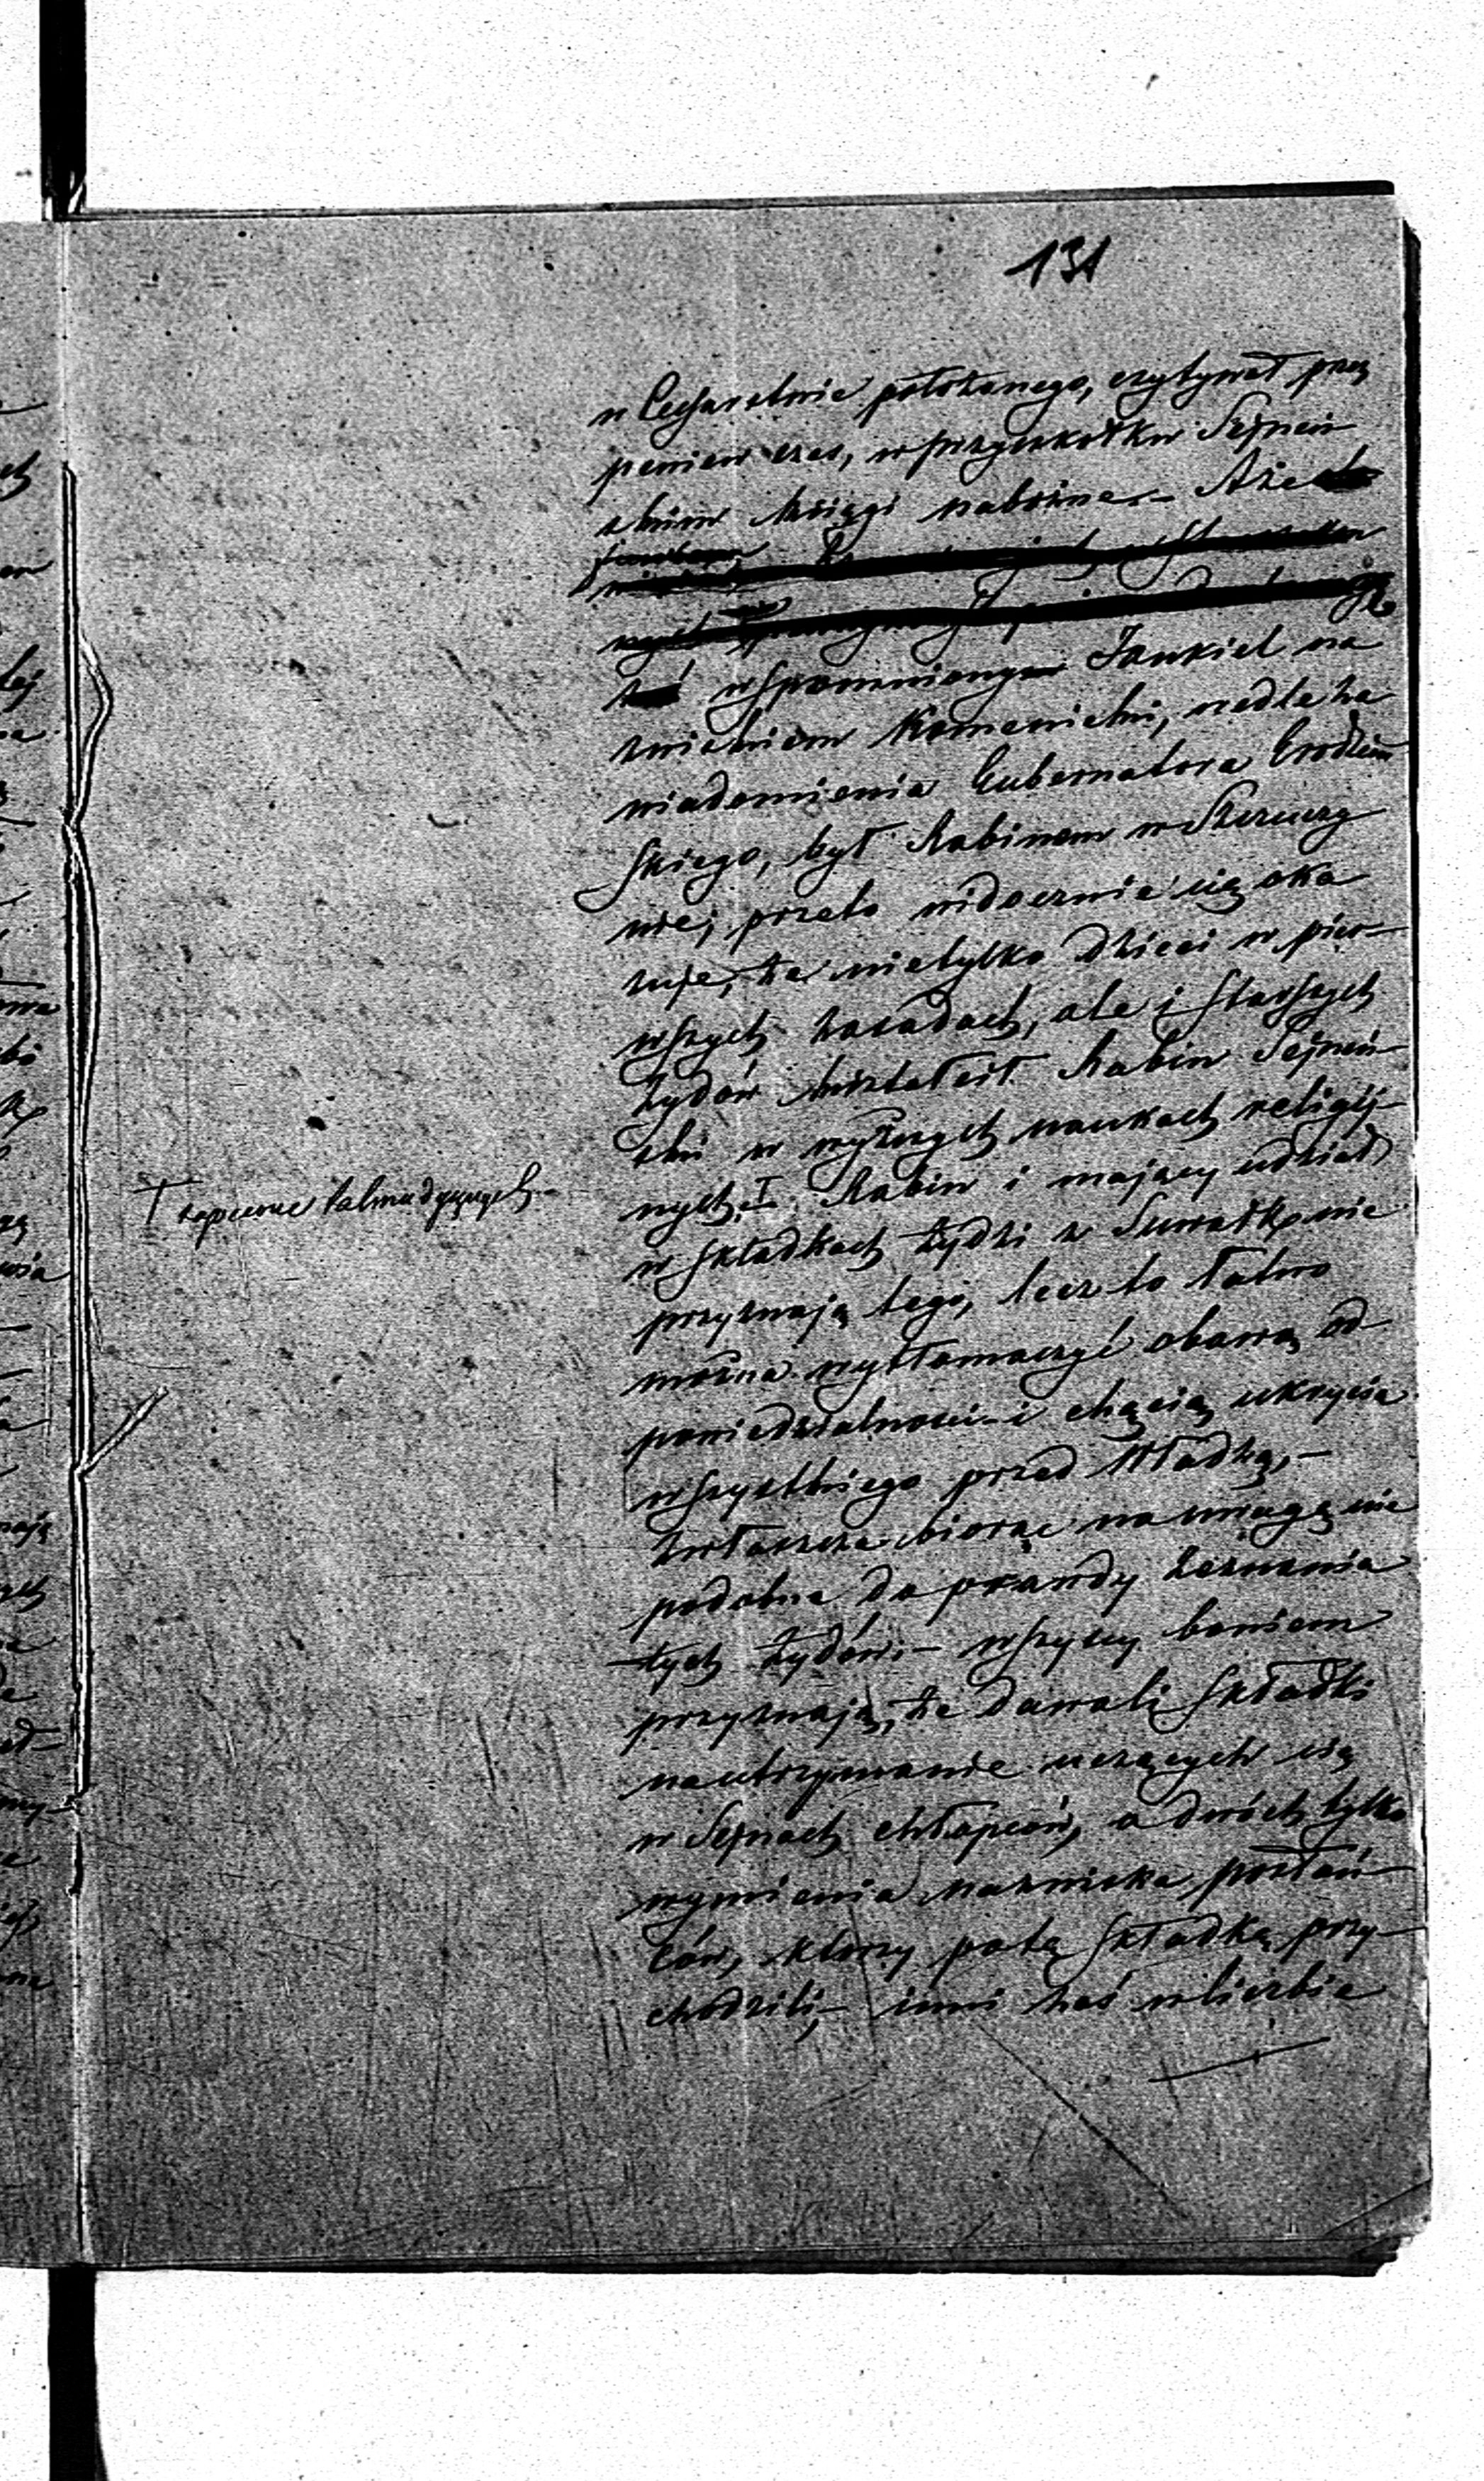 131
w Cesarstwie położonego, czytywał przez
pewien czas, w przyszkołku Sejneń
skim księgi nabożne. – A że
wspomniony Jankiel na
zwiskiem Kamenietski, wedle za
wiadomienia Gubernatora Grodzień
skiego, był Rabinem w Szczuczy
nie; przeto widocznie się oka
zuje, że nietylko dzieci w pier-
wszych zasadach, ale i starszych
Żydów kształcił Rabin Sejneń-
ski w wyższych naukach religij-
nych, Rabin i mający udział
w składkach Żydzi z Suwałk, nie
przyznają tego, lecz to łatwo
można wytłomaczyć obawą od-
powiedzialności i chęcią ukrycia
wszystkiego przed Władzą, –
zwłaszcza biorąc na uwagę nie
podobne do prawdy zeznania
tych Żydów; – wszyscy bowiem
przyznają, że dawali składki
na utrzymanie uczących się
w Sejnach chłopców, a dwóch tylko
wymienia nazwiska posłań-
ców, którzy po tę składkę przy-
chodzili; – inni zaś w liczbie